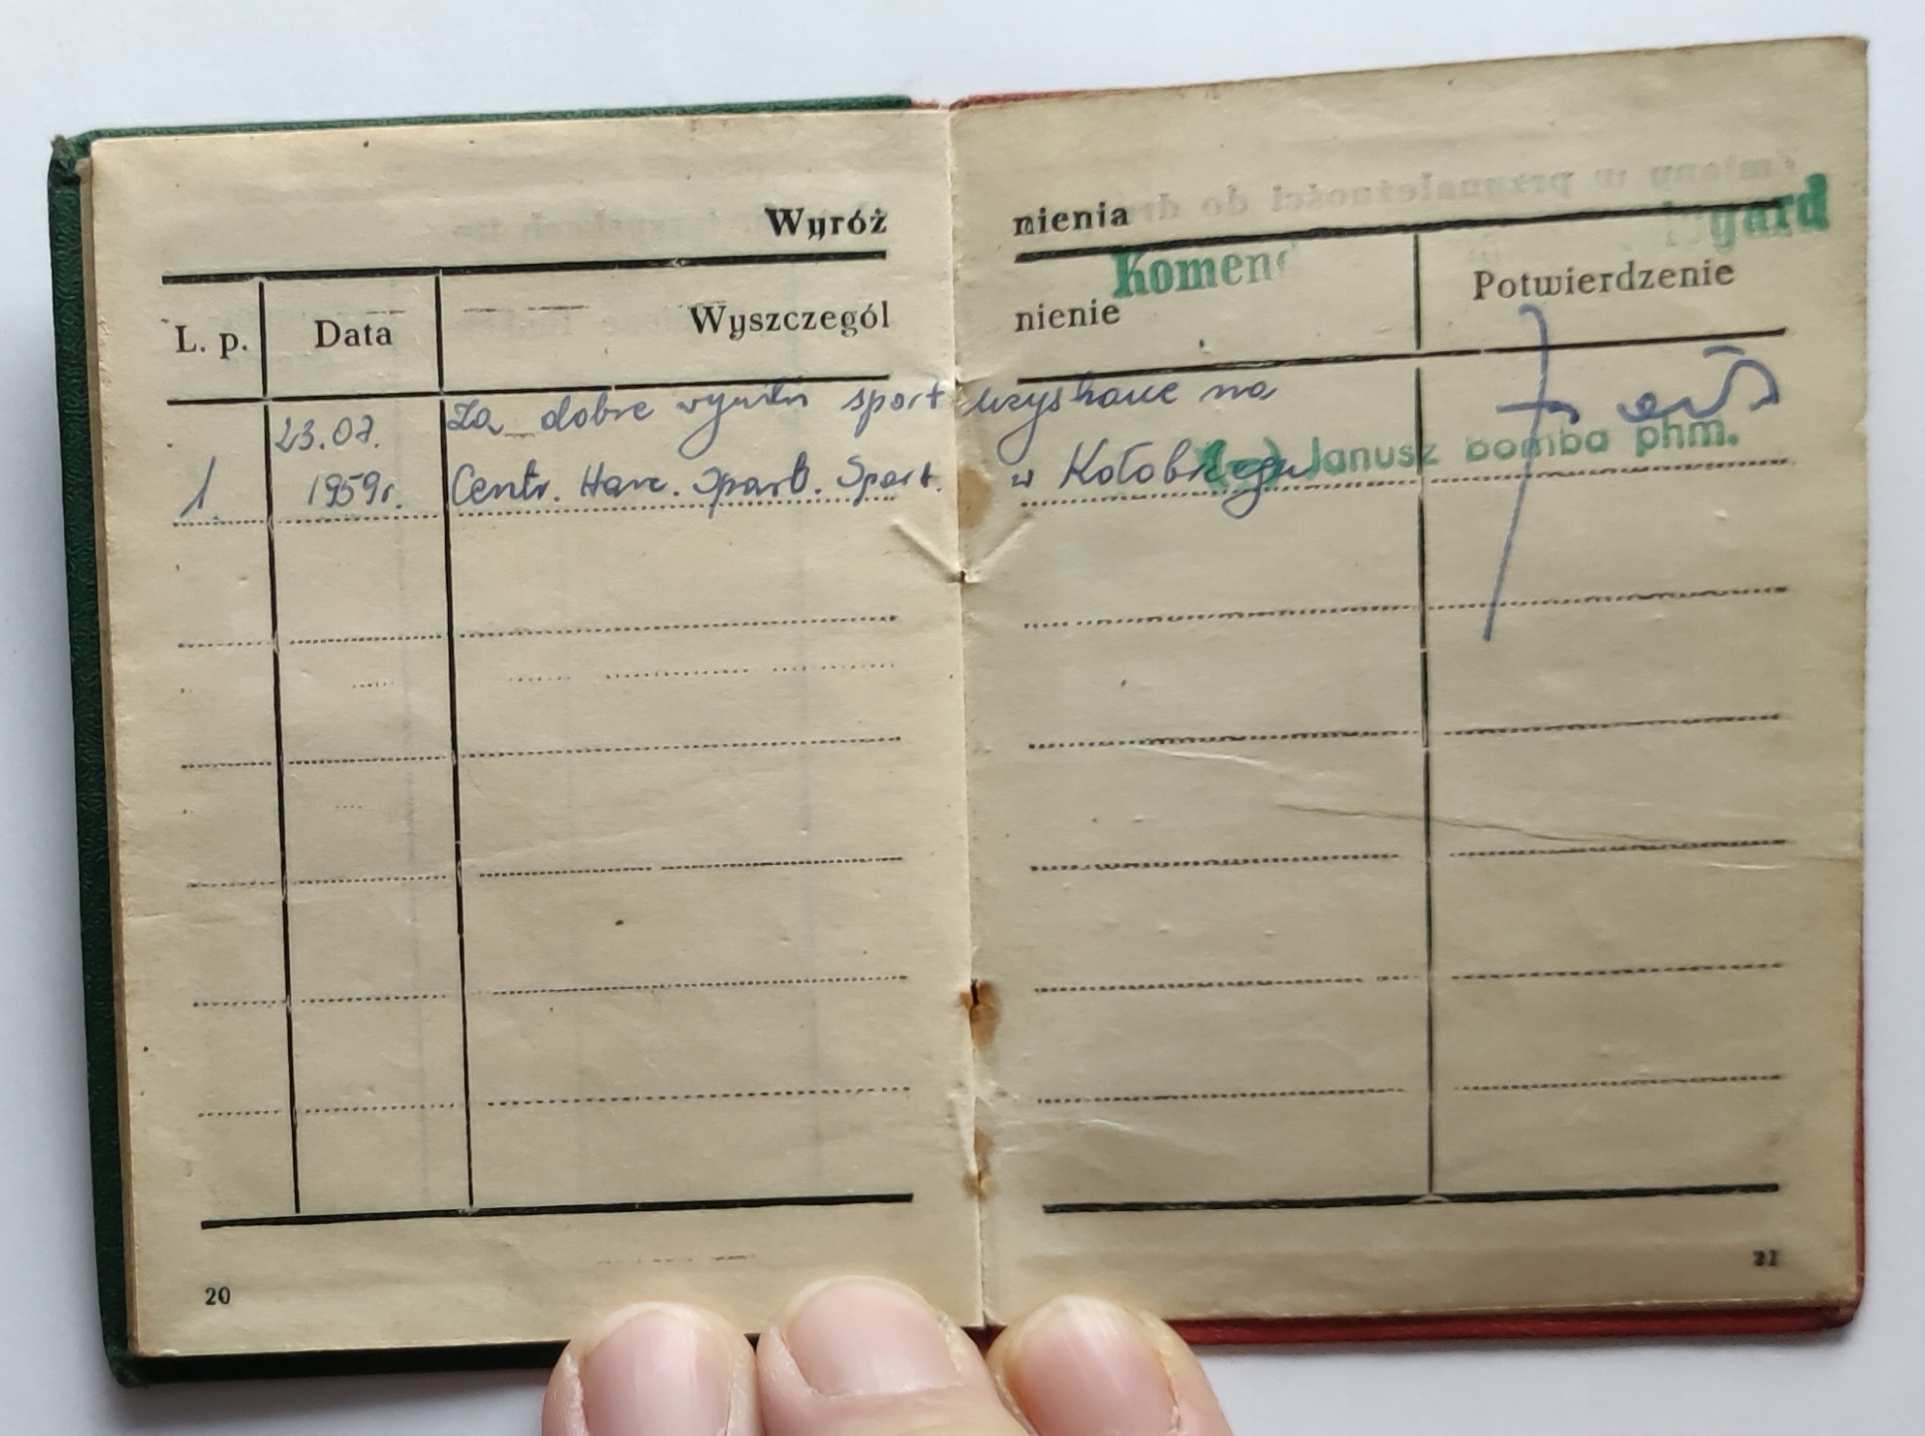 Wyróż nienia
gard
Komend
L. p. Data Wyszczegól nienie Potwierdzenie
23.07. Za dobre wyniki sport uzyskane na
1. 1959r. Centr. Harc. Spart. Sport. w Kołobrzegu
Janusz bomba phm.
20
21